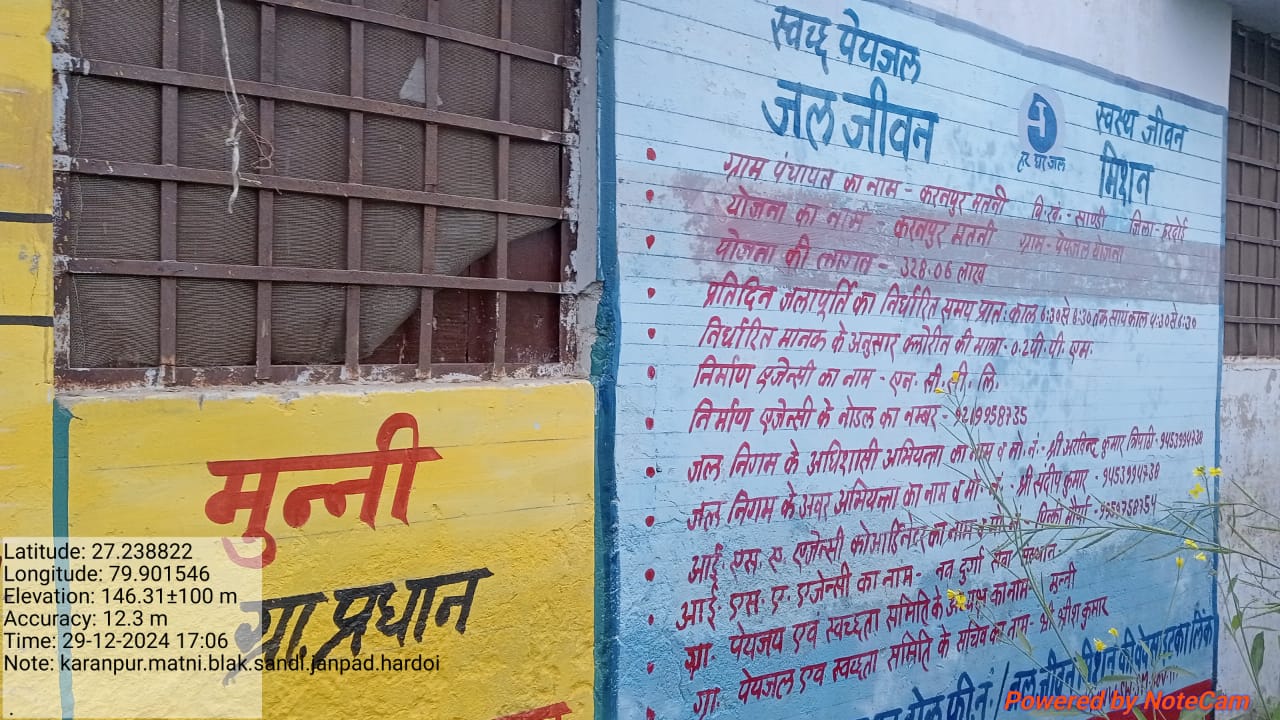 स्वच्छ पेयजल
स्वस्थ जीवन
जल जीवन
मिशन
हर घर जल
ग्राम पंचायत का नाम - करनपुर मतनी वि.खं.- साण्डी जिला- हरदोई
योजना का नाम - करनपुर मतनी ग्राम- पेयजल योजना
योजना की लागत - 328.06 लाख
प्रतिदिन जलापूर्ति का निर्धारित समय प्रातः काल 6:30 से 8:30 तक सायं काल 4:30 से 6:30
निर्धारित मानक के अनुसार क्लोरीन की मात्रा- 0.2 पी. पी. एम.
निर्माण एजेन्सी का नाम - एन. सी. सी. लि.
निर्माण एजेन्सी के नोडल का नम्बर - 9219958735
जल निगम के अधिशासी अभियन्ता का नाम व मो. नं.- श्री अरविन्द कुमार त्रिपाठी -
जल निगम के अवर अभियन्ता का नाम व मो. नं. श्री संदीप कुमार -
आई. एस. ए. एजेन्सी कोआर्डिनेटर का नाम व मो. नं. पिन्की मौर्या -
आई. एस. ए. एजेन्सी का नाम- नव दुर्गा सेवा संस्थान
ग्रा. पेयजय एवं स्वच्छता समिति के अध्यक्ष का नाम- मुन्नी
ग्रा. पेयजल एवं स्वच्छता समिति के सचिव का नाम- श्री श्रीश कुमार
टोल फ्री नं. / जल जीवन मिशन की वेबसाइट का लिंक
मुन्नी
ग्रा. प्रधान
Latitude: 27.238822
Longitude: 79.901546
Elevation: 146.31±100 m
Accuracy: 12.3 m
Time: 29-12-2024 17:06
Note: karanpur.matni.blak.sandi.janpad.hardoi
Powered by NoteCam